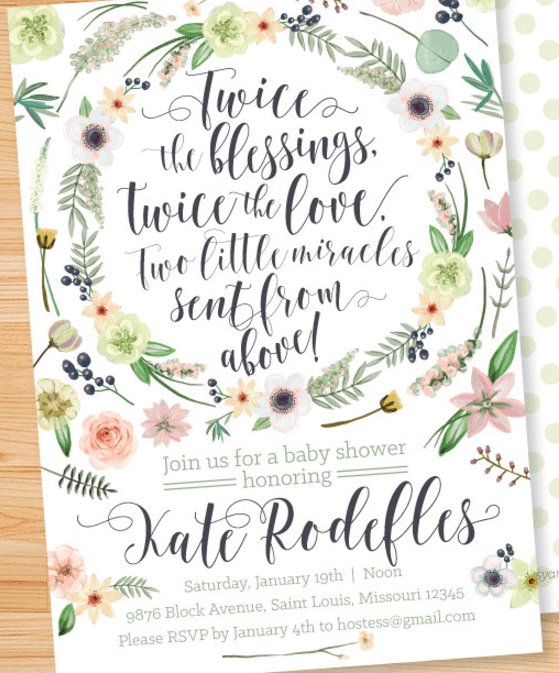 Twice
the blessings,
twice the love.
Two little miracles
sent from
above!
Join us for a baby shower
honoring
Kate Rodefles
Saturday, January 19th | Noon
9876 Block Avenue, Saint Louis, Missouri 12345
Please RSVP by January 4th to hostess@gmail.com